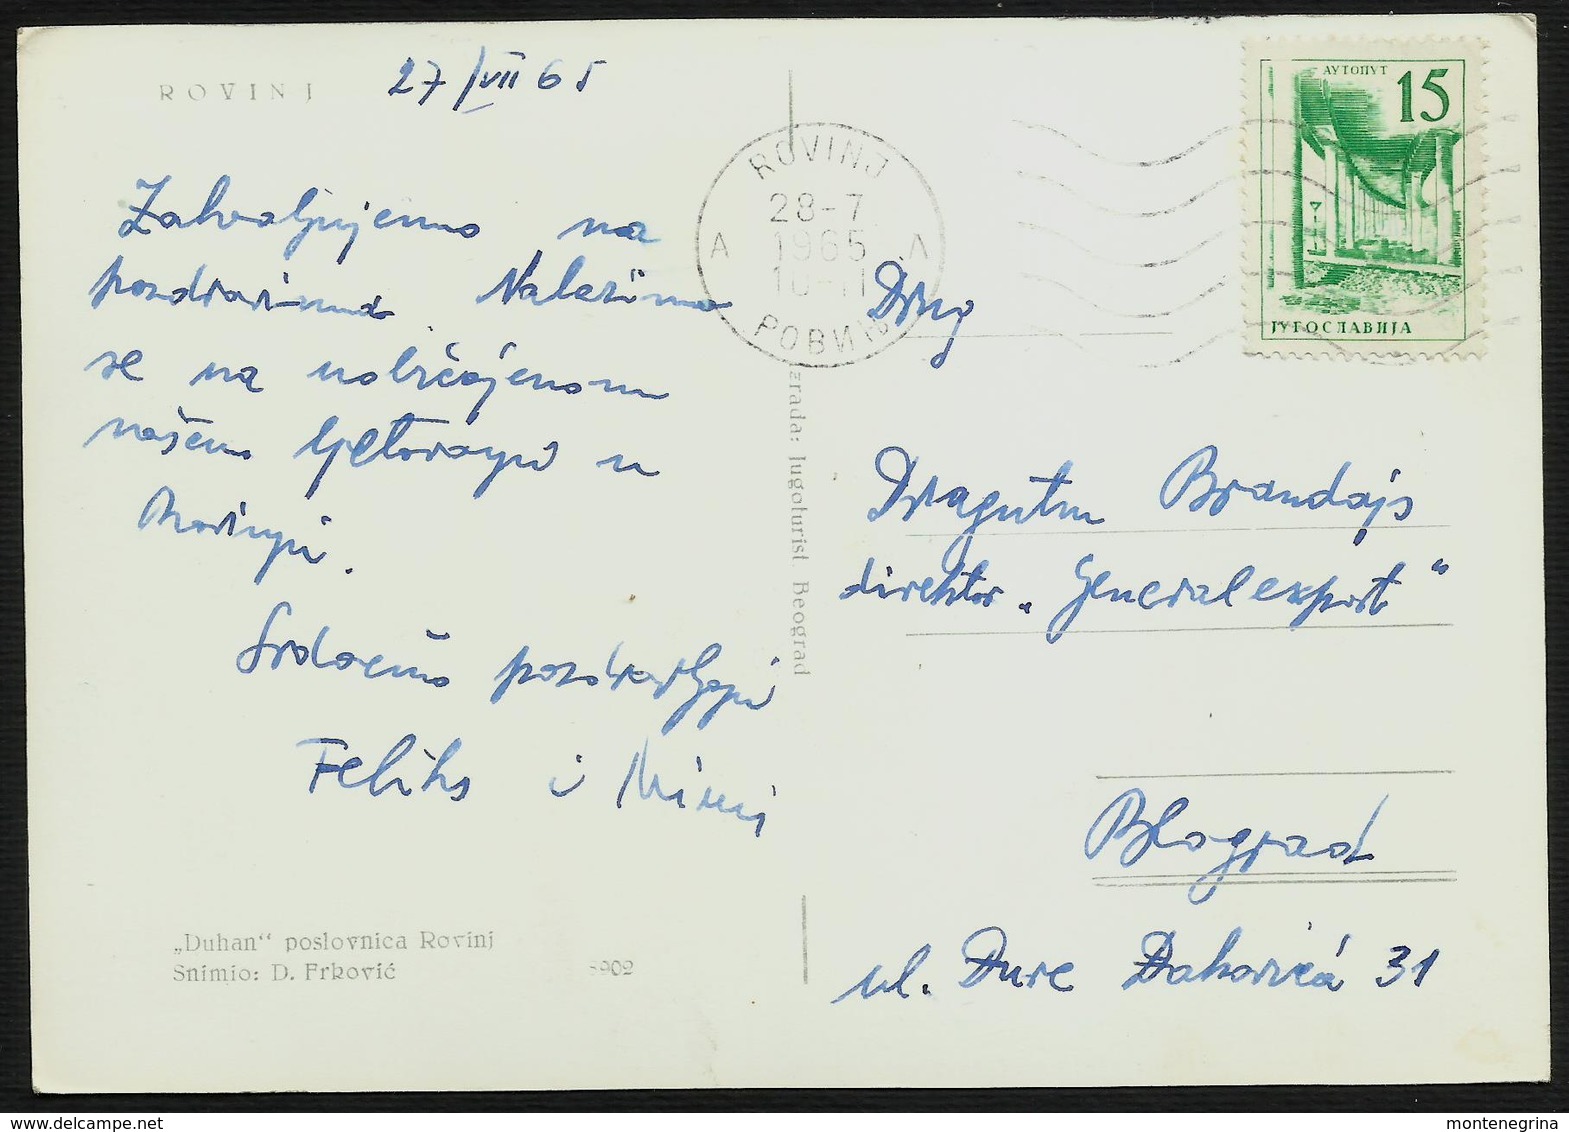 ROVINJ
27/VII 65
Zahvaljujemo na
pozdravima. Nalazimo
se na uobičajenom
našem ljetovanju u
Rovinju.
Srdačno pozdravljaju
Feliks i Mimi
„Duhan“ poslovnica Rovinj
Snimio: D. Frković
5902
Izrada: Jugoturist. Beograd
ROVINJ
28-7
1965
10-11
A A
РОВИЊ
АУТОПУТ
15
ЈУГОСЛАВИЈА
Drug
Dragutin Brandajs
direktor „Generalexport“
Beograd
ul. Đure Đakovića 31
montenegrina